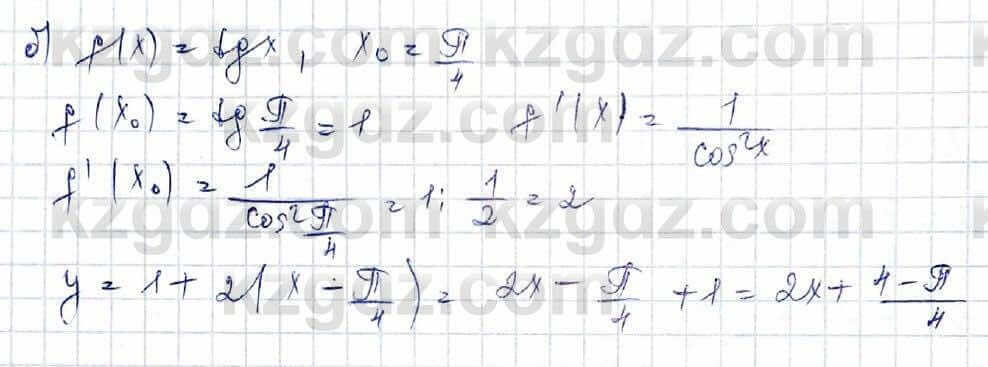 б) f(x) = tg x, x₀ = π/4
f(x₀) = tg π/4 = 1 f'(x) = 1/cos²x
f'(x₀) = 1/cos² π/4 = 1 : 1/2 = 2
y = 1 + 2(x - π/4) = 2x - π/4 + 1 = 2x + 4-π/4
kzgdz.com
kzgdz.com
kzgdz.com
kzgdz.com